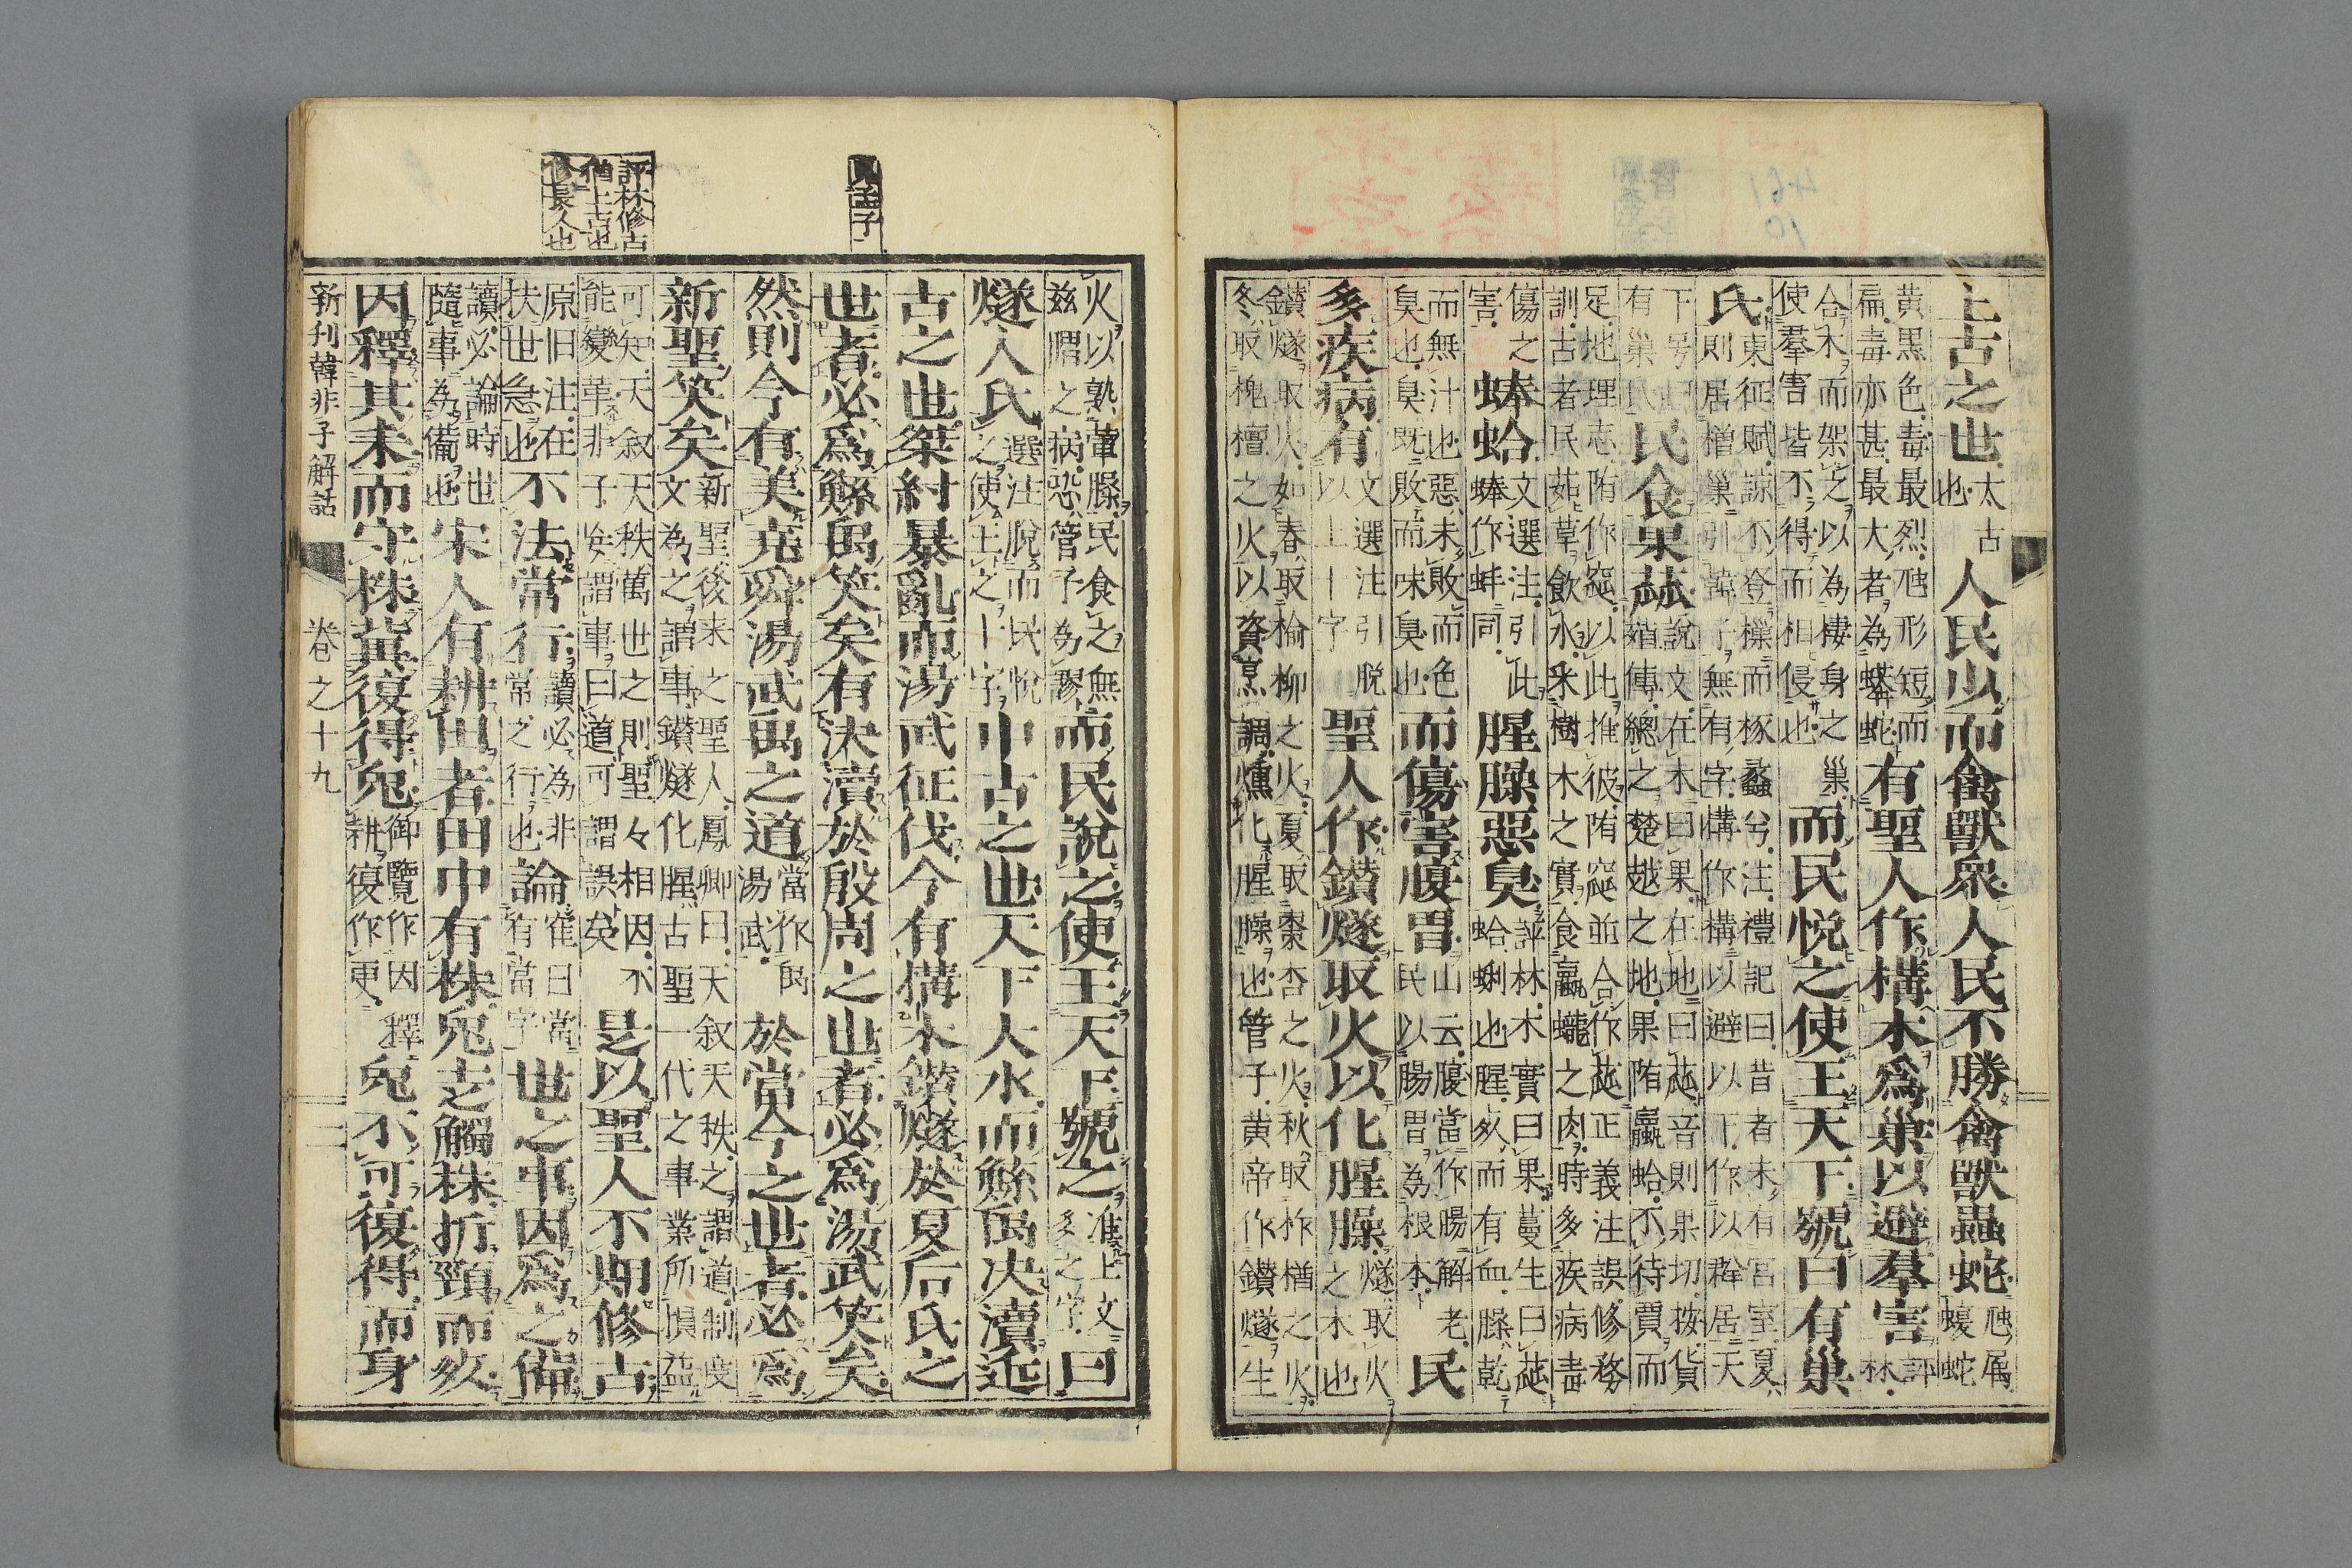 上古之世太古也人民少而禽獸衆人民不勝禽獸蟲蛇虺属蝮蛇
黄黒色毒最烈虺形短而扁毒亦甚最大者為蟒蛇有聖人作構木爲巢以避羣害評林
合木而架之以為棲身之巢使羣害皆不得而相侵也而民悦之使王天下號曰有巢
氏東征賦諒不登樔而椓蠡兮注禮記曰昔者未有宮室夏則居橧巢引韓子無有字構作搆以避以下作以羣居天
下号曰有巢氏民食果蓏説文在木曰果在地曰蓏音則果切按貨殖傳總之楚越之地果陏蠃蛤不待賈而
足地理志陏作窳以此推彼陏窳並合作蓏正義注誤修務訓古者民茹草飲水釆樹木之實食蠃蠬之肉時多疾病毒
傷之害蜯蛤文選注引此蜯作蚌同腥臊惡臭評林木實曰果蔓生曰蓏蛤蜊也腥魚而有血臊乾
而無汁也惡未敗而色臭也臭既敗而味臭也而傷害腹胃山云腹當作腸解老民以腸胃為根本民
多疾病有文選注引脱以上十字聖人作鑚燧取火以化腥臊燧取火之木也
鑚燧取火如春取榆柳之火夏取棗杏之火秋取柞楢之火冬取槐檀之火以資烹調燻化腥臊也管子黄帝作鑚燧生
火以熟葷臊民食之無兹䐜之病惡管子為謬而民説之使王天下號之准上文多之字曰
燧人氏選注脱而民悦之使王之十字中古之世天下大水而鯀禹决瀆近
古之世桀紂暴亂而湯武征伐今有搆木鑚燧於夏后氏之
世者必爲鯀禹笑矣有決瀆於殷周之世者必爲湯武笑矣
然則今有美尭舜湯武禹之道當作禹湯武於當今之世者必爲
新聖笑矣新聖後来之聖人鳳卿曰天叙天秩之謂道制度文為之謂事鑚燧化腥古聖一代之事業所損益
可知天叙天秩萬世之則聖々相因不能變革非子唉謂事曰道可謂誤矣是以聖人不期修古
原旧注在扶世急也不法常行讀必為非常之行也論崔曰當有當字世之事因爲之備
讀必論時世隨事為備也宋人有耕田者田中有株兎走觸株折頸而死
因釋其耒而守株冀復得兎御覽作因釋耕復作更兎不可復得而身
見孟子
評林修古
猶上古也
修長久也
新刊韓非子解詁
巻之十九
二